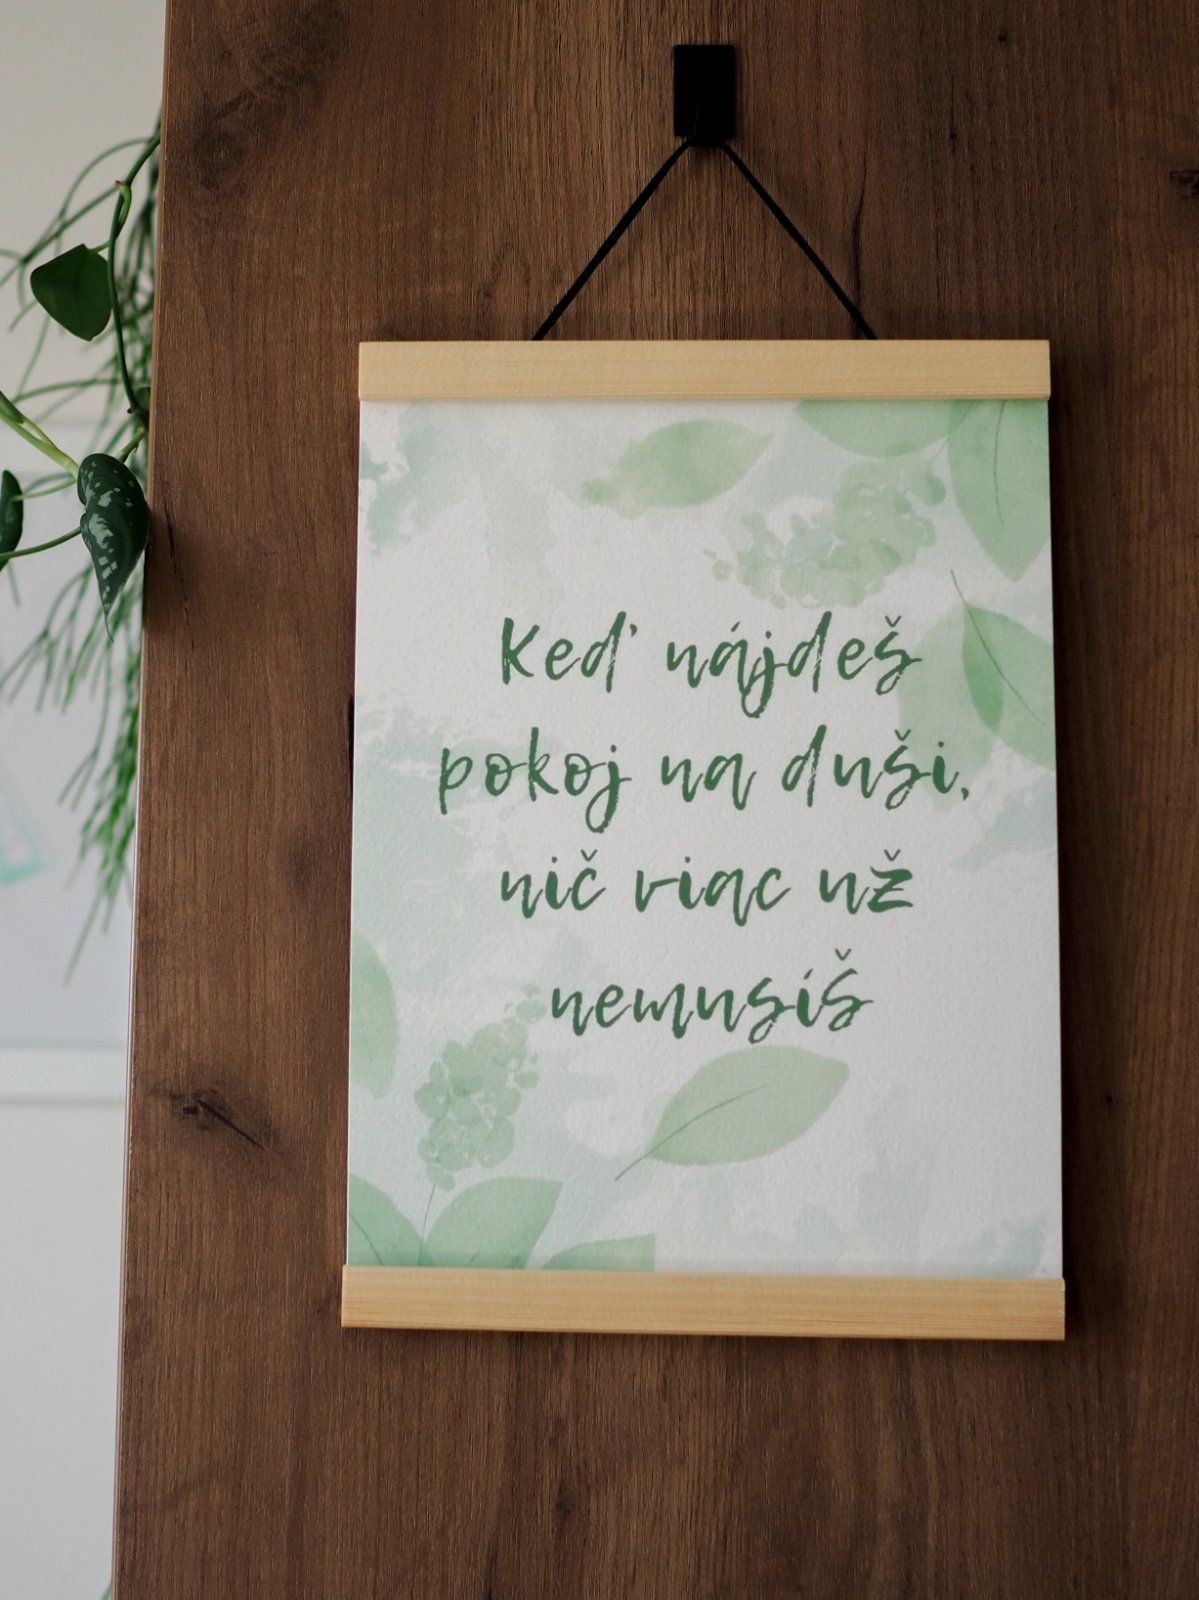 Keď nájdeš
pokoj na duši,
nič viac už
nemusíš